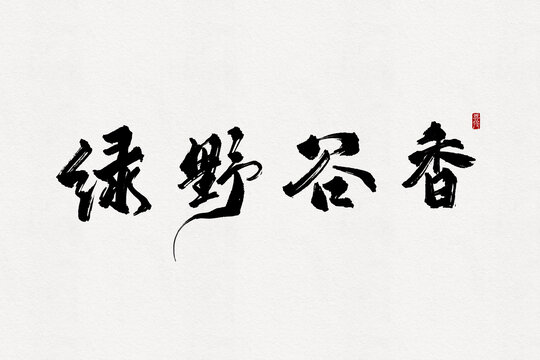 绿野谷香